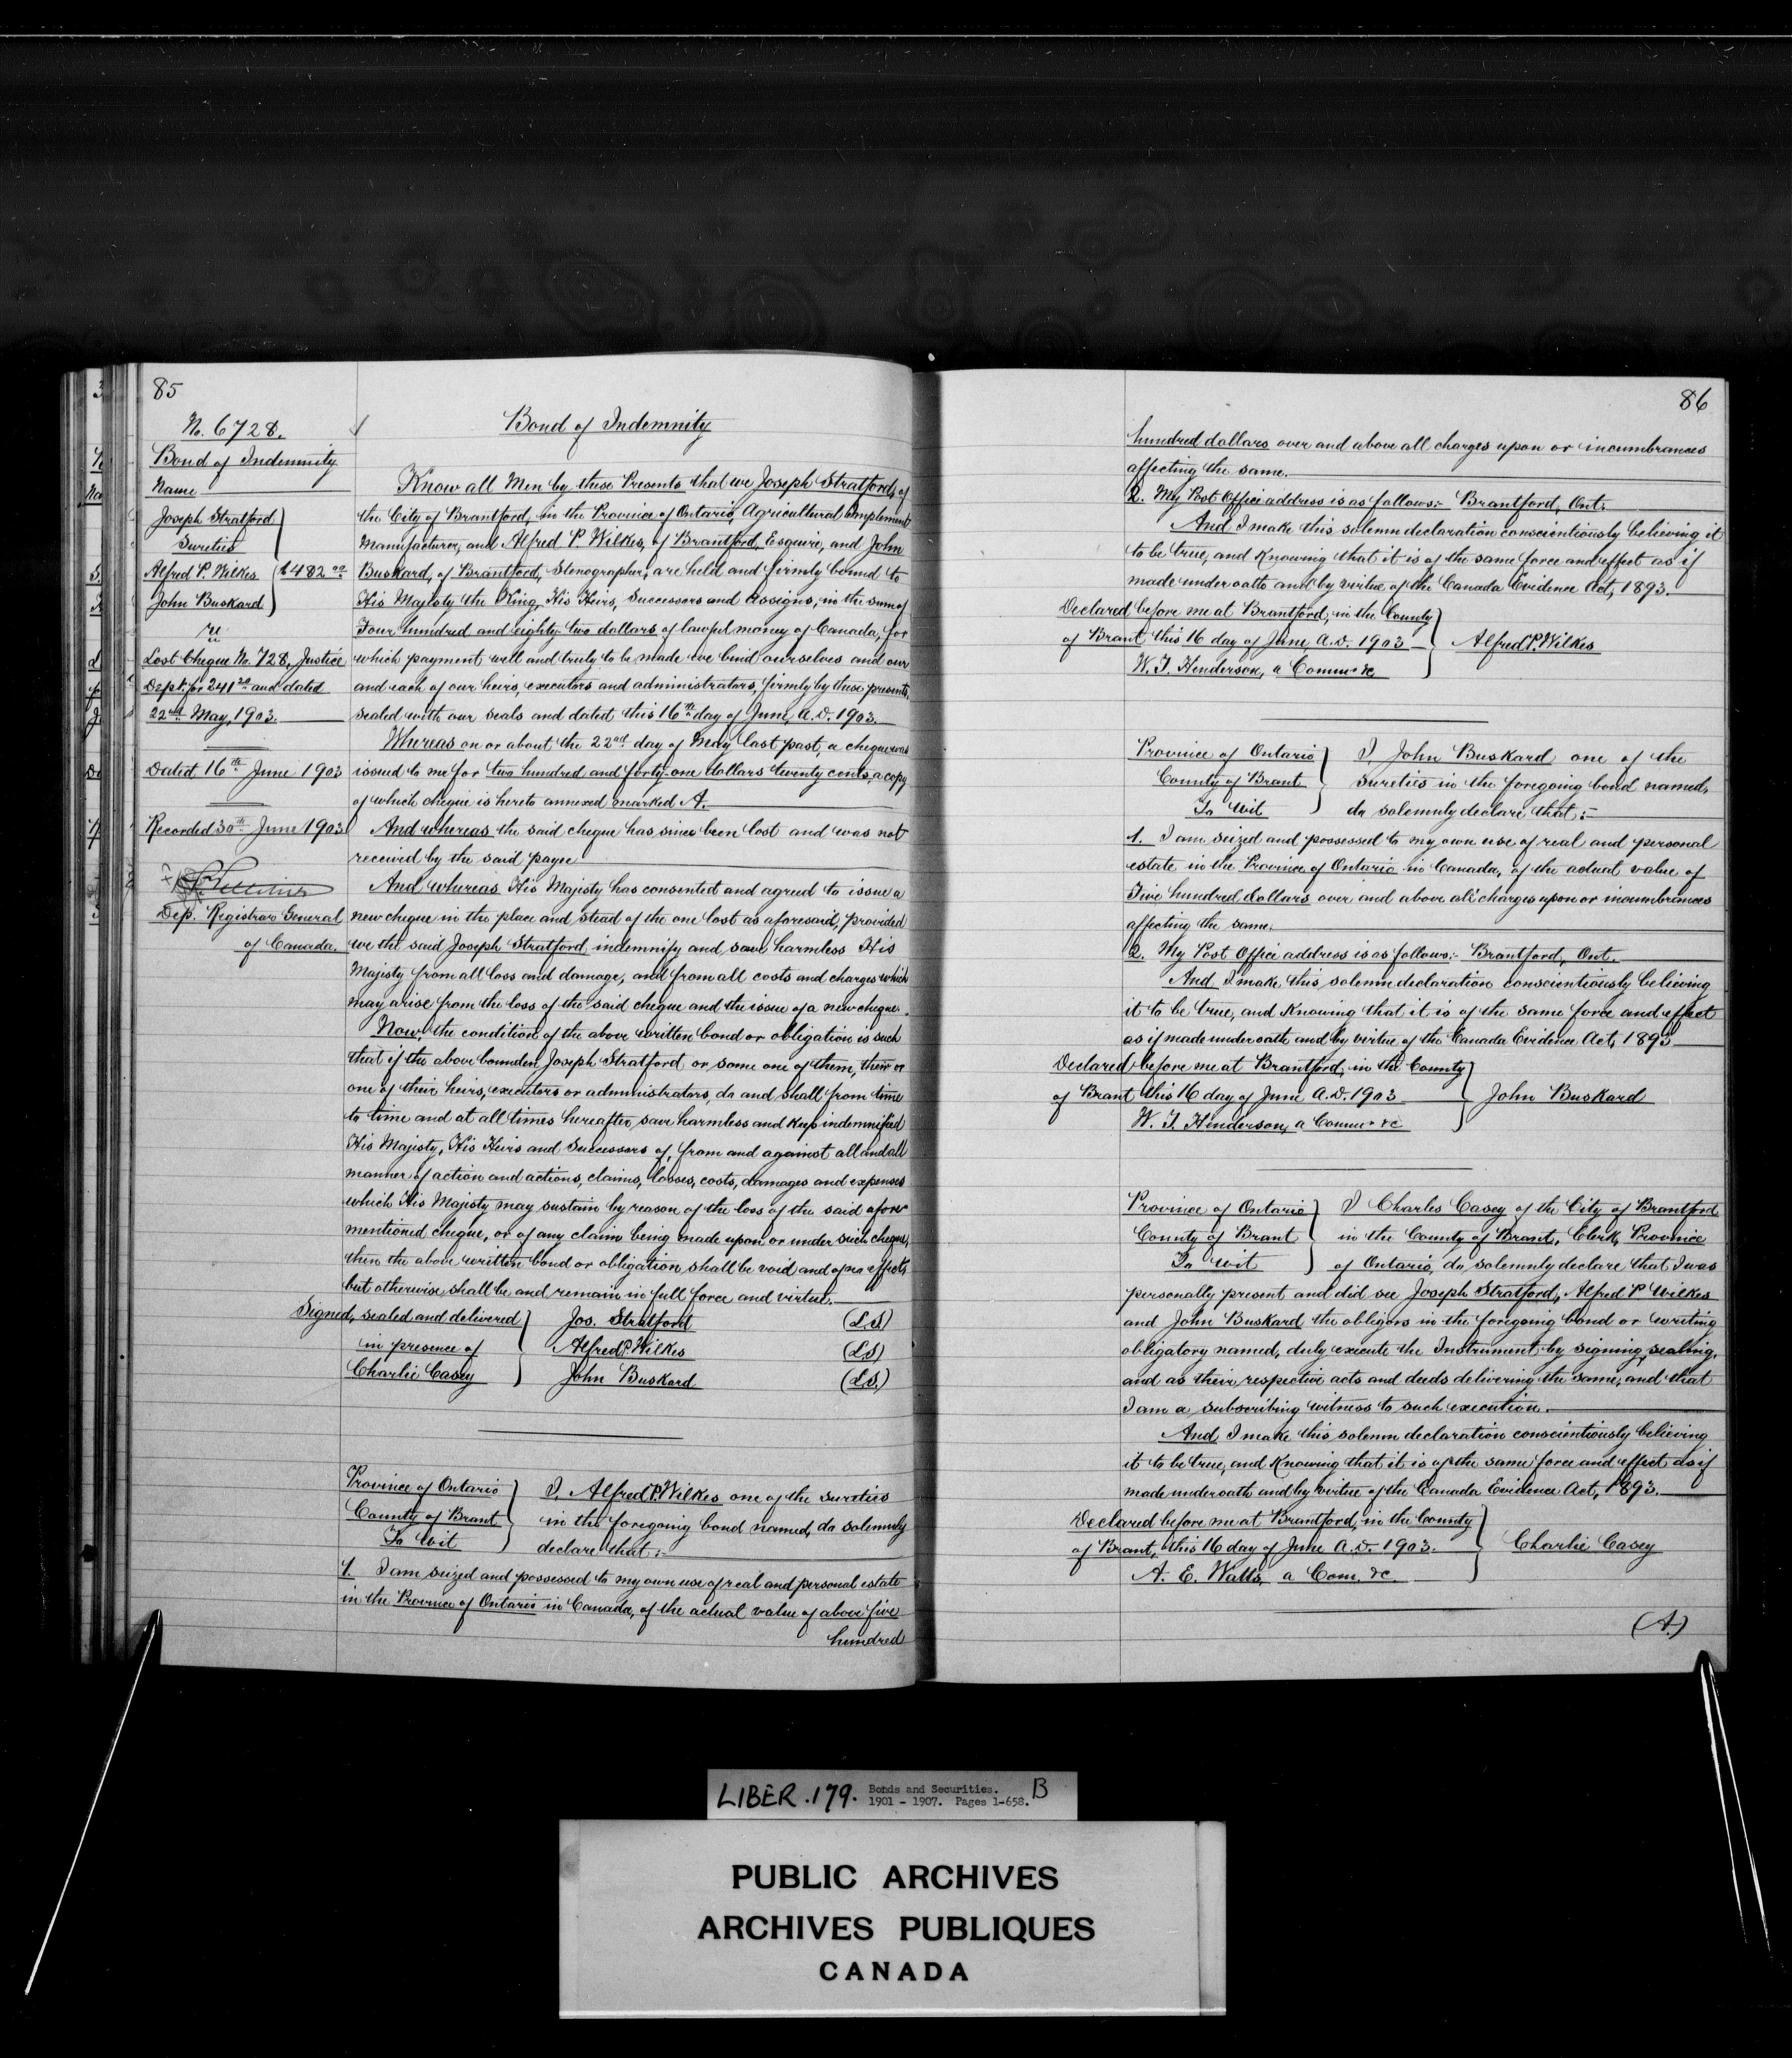 85
No. 6728.
Bond of Indemnity
Name
Joseph Stratford
Sureties
Alfred P. Wilkes $482.00
John Buskard
re
Lost Cheque No. 728, Justice
Dept. for 241 20 and dated
22nd May, 1903.
Dated 16th June 1903
Recorded 30th June 1903
Dep. Registrar General
of Canada.
Bond of Indemnity
Know all Men by these Presents that we Joseph Stratford, of
the City of Brantford, in the Province of Ontario, Agricultural Implement
Manufacturer, and Alfred P. Wilkes, of Brantford, Esquire, and John
Buskard, of Brantford, Stenographer, are held and firmly bound to
His Majesty the King, His Heirs, Successors and Assigns, in the sum of
Four hundred and eighty two dollars of lawful money of Canada, for
which payment well and truly to be made we bind ourselves and our
and each of our heirs, executors and administrators, firmly by these presents,
sealed with our seals and dated this 16th day of June, A.D. 1903.
Whereas on or about the 22nd day of May last past, a cheque was
issued to me for two hundred and forty-one dollars twenty cents, a copy
of which cheque is hereto annexed marked A.
And whereas the said cheque has since been lost and was not
received by the said payee
And whereas His Majesty has consented and agreed to issue a
new cheque in the place and stead of the one lost as aforesaid, provided
we the said Joseph Stratford indemnify and save harmless His
Majesty from all loss and damage, and from all costs and charges which
may arise from the loss of the said cheque and the issue of a new cheque.
Now, the condition of the above written bond or obligation is such
that if the above bounden Joseph Stratford or some one of them, their or
one of their heirs, executors or administrators, do and shall from time
to time and at all times hereafter, save harmless and keep indemnified
His Majesty, His Heirs and Successors of, from and against all and all
manner of action and actions, claims, losses, costs, damages and expenses
which His Majesty may sustain by reason of the loss of the said afore
mentioned cheque, or of any claim being made upon or under such cheque,
then the above written bond or obligation shall be void and of no effect,
but otherwise shall be and remain in full force and virtue.
Signed, sealed and delivered Jos. Stratford (L.S)
in presence of Alfred P. Wilkes (L.S)
Charlie Casey John Buskard (L.S.)
Province of Ontario I, Alfred P. Wilkes one of the sureties
County of Brant in the foregoing bond named, do solemnly
To Wit declare that:-
1. I am seized and possessed to my own use of real and personal estate
in the Province of Ontario in Canada, of the actual value of above five
hundred
86
hundred dollars over and above all charges upon or incumbrances
affecting the same.
2. My Post Office address is as follows:- Brantford, Ont.
And I make this solemn declaration conscientiously believing it
to be true, and knowing that it is of the same force and effect as if
made under oath and by virtue of the Canada Evidence Act, 1893.
Declared before me at Brantford, in the County
of Brant this 16 day of June, A.D. 1903 Alfred P. Wilkes
W. T. Henderson, a Commr &c
Province of Ontario I, John Buskard one of the
County of Brant sureties in the foregoing bond named,
To Wit do solemnly declare that:-
1. I am seized and possessed to my own use of real and personal
estate in the Province of Ontario in Canada, of the actual value of
Five hundred dollars over and above all charges upon or incumbrances
affecting the same.
2. My Post Office address is as follows:- Brantford, Ont.
And I make this solemn declaration conscientiously believing
it to be true, and knowing that it is of the same force and effect
as if made under oath and by virtue of the Canada Evidence Act, 1893
Declared before me at Brantford, in the County
of Brant this 16 day of June A.D. 1903 John Buskard
W. T. Henderson, a Commr &c
Province of Ontario I Charles Casey of the City of Brantford
County of Brant in the County of Brant, Clerk, Province
To wit of Ontario, do solemnly declare that I was
personally present and did see Joseph Stratford, Alfred P. Wilkes
and John Buskard the obligors in the foregoing bond or writing
obligatory named, duly execute the Instrument by signing, sealing,
and as their respective acts and deeds delivering the same, and that
I am a subscribing witness to such execution.
And I make this solemn declaration conscientiously believing
it to be true, and knowing that it is of the same force and effect as if
made under oath and by virtue of the Canada Evidence Act, 1893.
Declared before me at Brantford, in the County
of Brant, this 16 day of June A.D. 1903. Charlie Casey
A. E. Watts, a Com. &c.
(A.)
LIBER .179. Bonds and Securities. B
1901 - 1907. Pages 1-658.
PUBLIC ARCHIVES
ARCHIVES PUBLIQUES
CANADA